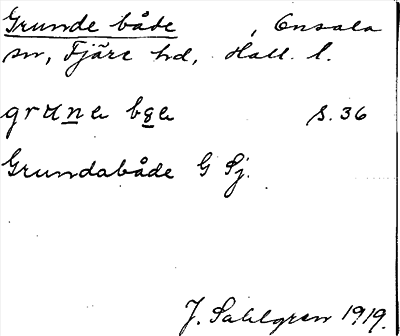 Grunde både , Onsala
sn, Fjäre hd, Hall. l.
s. 36
Grundabåde G Sj.
J. Sahlgren 1919.